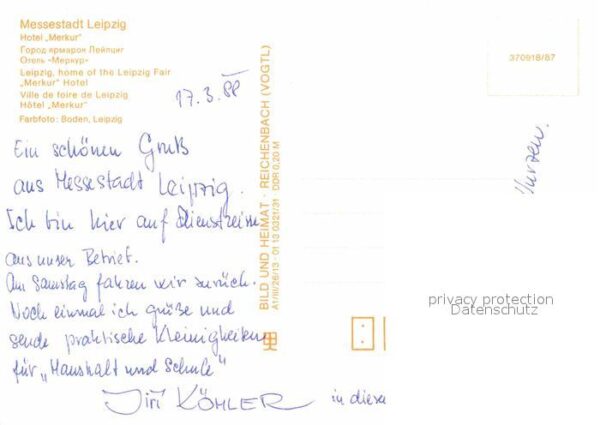 Messestadt Leipzig
Hotel „Merkur"
Город ярмарок Лейпциг
Отель «Меркур»
Leipzig, home of the Leipzig Fair
„Merkur" Hotel
Ville de foire de Leipzig
Hôtel „Merkur"
Farbfoto: Boden, Leipzig
17.3.88
Ein schönen Gruß
aus Messestadt Leipzig.
Ich bin hier auf Dienstreise
aus unser Betrieb.
Am Samstag fahren wir zurück.
Noch einmal ich grüße und
sende praktische Kleinigkeiten
für „Haushalt und Schule"
Jiří KÖHLER
in dieser
BILD UND HEIMAT · REICHENBACH (VOGTL)
A1/III/26/13 · 01 13 0321/31 DDR 0,20 M
370918/87
privacy protection
Datenschutz